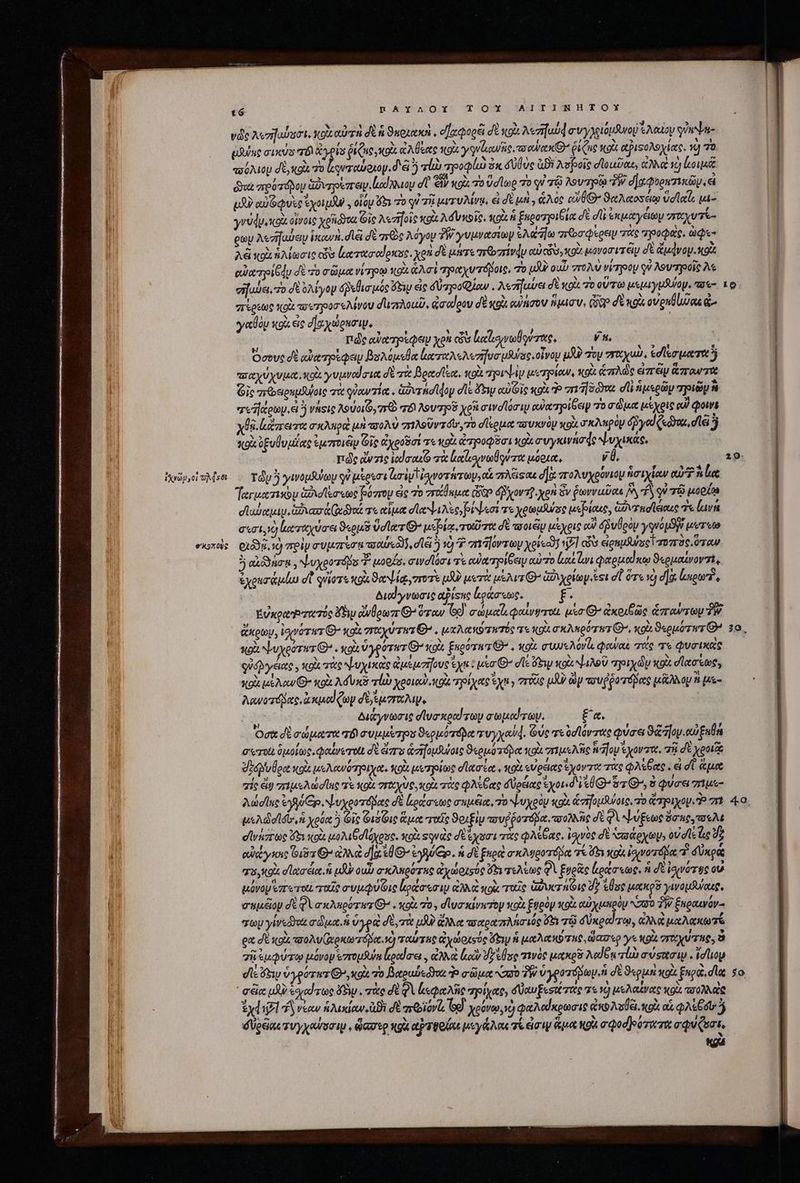 16 ΠΑΥΛΟΥ ΤΟΥ ΑΙΓΙΝΗΤΟΥ
νῶς λεπτύνουσι. καὶ αὐτὴ δὲ ἡ θηριακὴ. διαφορεῖ δὲ καὶ λεπτύνει συγχριόμενον ἔλαιον
μένης σικύου τοῦ ἀγρίου ῥίζης, καὶ ἀλθέας καὶ γεντιανῆς. πανακος ῥίζης καὶ ἀριστολοχίας. καὶ τὸ
πόλιον δὲ, καὶ τὸ κενταύριον. δεῖ δὲ τὴν τροφὴν οὐκ εὐθὺς ἐπὶ λαβεῖς διδόναι, ἀλλὰ καὶ κοιμᾶ
σθαι πρότερον ἐπιτρέπειν. κάλλιον δ' εἴη καὶ τὸ ὕδωρ τὸ ἐν τῷ λουτρῷ τῶν διαφορητικῶν, εἰ
μὲν αὐτοφυὲς ἔχοιμεν, οἷόν ἐστι τὸ ἐν τῇ μιτυλήνῃ, εἰ δὲ μὴ, ἁλὸς αὖθις θαλασσίῳ ὕδατι μι-
γνύειν. καὶ οἴνοις χρῆσθαι τοῖς λεπτοῖς καὶ λευκοῖς. καὶ ἡ ξηροτριβία δὲ δι' ἐκμαγείων παχυτέ-
ρων λεπτύνειν ἱκανή. δεῖ δὲ πρὸς λόγον τῶν γυμνασίων ἐλάττω προσφέρειν τὰς τροφάς. ὠφε-
λεῖ καὶ ἡλίωσις τοὺς κατασάρκους. χρὴ δὲ μήτε προπίνειν αὐτοὺς, καὶ μονοσιτεῖν δὲ ἄμεινον. καὶ
ἀνατρίβειν δὲ τὸ σῶμα νίτρῳ καὶ ἁλσὶ τραχυτέροις. τὸ μὲν οὖν πολὺ νίτρον ἐν λουτροῖς λε
πτύνει, τὸ δὲ ὀλίγον ἐρεθισμός ἐστιν εἰς εὐτροφίαν. λεπτύνει δὲ καὶ τὸ οὕτω μεμιγμένον. πε- 10
πέρεως καὶ πετροσελίνου διπλοῦν, ἀσάρου δὲ καὶ ἀνήσου ἥμισυ, ὅπερ δὲ καὶ οὐρηθῆναι ἀ-
γαθὸν καὶ εἰς διαχώρησιν.
Πῶς ἀνατρέφειν χρὴ τοὺς κατισχνωθέντας. νη.
Ὅσους δὲ ἀνατρέφειν βουλόμεθα καταλελεπτυσμένους. οἶνον μὲν τὸν παχὺν, ἐδέσματα δὲ
παχύχυμα, καὶ γυμνάσια δὲ τὰ βραδέα. καὶ τρίψιν μετρίαν, καὶ ἁπλῶς εἰπεῖν ἅπαντα
τοῖς προειρημένοις τὰ ἐναντία. ἐπιτήδειον δέ ἐστιν αὐτοῖς καὶ τὸ πιττοῦσθαι δι' ἡμερῶν τριῶν ἢ
τεττάρων. εἰ δὲ νήσεις λούοιτο, πρὸ τοῦ λουτροῦ χρὴ σινδόσιν ἀνατρίβειν τὸ σῶμα μέχρις ἂν φοινι
χθῇ. κἄπειτα σκληρὰ μὴ πολὺ πιλοῦντας, τὸ δέρμα πυκνὸν καὶ σκληρὸν ἐργάζεσθαι, δεῖ δὲ
καὶ ὀξυθυμίας ἐμποιεῖν τοῖς ἀχρόοσί τε καὶ ἀτρόφοσι καὶ συγκινήσεις ψυχικάς.
Πῶς ἄν τις ἰάσαιτο τὰ κατισχνωθέντα μόρια. νθ. 20
ἰχνῶν, οἱ παλαιοὶ Τῶν δὲ γινομένων ἐν μέρεσί τισιν ἰσχνοτήτων, αἱ πλεῖσται διὰ πολυχρόνιον ἡσυχίαν αὐτῶν ἢ κα
ταγματικὸν ἐπιδέσεως τρόπον εἰς τὸ πάθημα τοῦτο ἔρχονται. χρὴ οὖν ῥωννύναι μὲν τὴν ἐν τῷ μορίῳ
δύναμιν. ἐπισπᾶσθαί τε αἷμα δαψιλές, τρίψεσί τε χρωμένους μετρίαις, ἐπιτηδείαις τε κινή
σεσι, καὶ καταχύσει θερμοῦ ὕδατος μετρίᾳ, ταῦτα δὲ ποιεῖν μέχρις ἂν ἐρυθρὸν γενόμενον μετεω
σκοποὺς ρισθῇ. καὶ πρὶν συμπέσῃ παύεσθαι, δεῖ δὲ καὶ τῶν πιττόντων χρίεσθαι ἐπὶ τοὺς εἰρημένους τόπους. ὅταν
δὲ αἰσθήσῃ, ψυχροτέρου τοῦ μορίου, σινδόσι τε ἀνατρίβειν αὐτὸ καί τινι φαρμάκῳ θερμαίνοντι,
ἐχρησάμην δ' ἐνίοτε καὶ θαψίας, ποτὲ μὲν μετὰ μέλιτος ἐπιχρίων, ἔστι δ' ὅτε καὶ διὰ κηρωτῆς.
Διάγνωσις ἀρίστης κράσεως. ξ.
Εὐκρατότατός ἐστιν ἄνθρωπος ὅταν τῷ σώματι φαίνηται μέσος ἀκριβῶς ἁπάντων τῶν
ἄκρων, ἰσχνότητος καὶ παχύτητος, μαλακότητός τε καὶ σκληρότητος, καὶ θερμότητος 30
καὶ ψυχρότητος. καὶ ὑγρότητος καὶ ξηρότητος. καὶ συνελόντι φάναι τάς τε φυσικὰς
ἐνεργείας, καὶ τὰς ψυχικὰς ἀμέμπτους ἔχῃ: μέσος δέ ἐστιν καὶ ψιλοῦ τριχῶν καὶ δασέως,
καὶ μέλανος καὶ λευκοῦ τὴν χροιὰν. καὶ τρίχας ἔχῃ, παῖς μὲν ὢν πυρροτέρας μᾶλλον ἢ με-
λανοτέρας. ἀκμάζων δὲ, ἔμπαλιν.
Διάγνωσις δυσκράτων σωμάτων. ξα.
Ὅσα δὲ σώματα τοῦ συμμέτρου θερμότερα τυγχάνει. τούς τε ὀδόντας φύσει θᾶττον. αὐξηθή
σεται ὁμοίως. φαίνεται δὲ εἴπερ ἁπτομένοις θερμότερα καὶ πιμελῆς ἧττον ἔχοντα. τῇ δὲ χροιᾷ
ἐξέρυθρα καὶ μελανότριχα. καὶ μετρίως δασέα. καὶ εὐρείας ἔχοντα τὰς φλέβας. εἰ δ' ἅμα
τις εἴη πιμελώδης τε καὶ παχὺς, καὶ τὰς φλέβας εὐρείας ἔχοι. δι' ἔθος οὗτος, οὐ φύσει πιμε-
λώδης ἐγένετο. ψυχροτέρας δὲ κράσεως σημεῖα, τὸ ψυχρὸν καὶ ἁπτομένοις. τὸ ἄτριχον. τὸ πι 40
μελώδες, ἡ χρόα δὲ τοῖς τοιούτοις ἅμα ταῖς θριξὶν πυρροτέρα. πολλῆς δὲ τῆς ψύξεως οὔσης, πελι
δνή πως ἐστὶ καὶ μολιβδόχρους. καὶ στενὰς δὲ ἔχουσι τὰς φλέβας. ἰσχνὸς δὲ ὑπάρχων, οὐδέ τις ἐξ
ἀνάγκης τοιοῦτος ἀλλὰ διὰ ἔθος ἐγένετο. ἡ δὲ ξηρὰ σκληροτέρα τέ ἐστι καὶ ἰσχνοτέρα τῆς εὐκρά
του, καὶ δασεῖα. ἡ μὲν οὖν σκληρότης ἀχώριστός ἐστι τελέως τῆς ξηρᾶς κράσεως. ἡ δὲ ἰσχνότης οὐ
μόνον ἕπεται ταῖς συμφύτοις κράσεσιν ἀλλὰ καὶ ταῖς ἐπικτήτοις ἐξ ἔθους μακροῦ γινομέναις.
σημεῖον δὲ τῆς σκληρότητος, καὶ τὸ, δυσκίνητον καὶ ξηρὸν καὶ αὐχμηρὸν ὑπὸ τῶν ξηραινόν-
των γίνεσθαι σῶμα. ἡ ὑγρὰ δὲ, τὰ μὲν ἄλλα παραπλήσιός ἐστι τῷ εὐκράτῳ, ἀλλὰ μαλακωτέ
ρα δὲ καὶ πολυσαρκωτέρα. καὶ ταύτης ἀχώριστός ἐστιν ἡ μαλακότης, ὥσπερ γε καὶ παχύτης, οὐ
τῇ ἐμφύτῳ μόνον ἑπομένη κράσει, ἀλλὰ κἀν ἐξ ἔθους τινὸς μακροῦ λάβῃ τὴν σύστασιν. ἴδιον
δέ ἐστιν ὑγρότητος, καὶ τὸ βαρύνεσθαι τὸ σῶμα ὑπὸ τῶν ὑγροτέρων. ἡ δὲ θερμὴ καὶ ξηρὰ, δα 50
σεῖα μὲν ἐσχάτως ἐστίν. τὰς δὲ τῆς κεφαλῆς τρίχας, εὐαυξεστάτας τε καὶ μελαίνας καὶ πολλὰς
ἔχει ἐπὶ τὴν νέαν ἡλικίαν. ἐπὶ δὲ προϊόντι τῷ χρόνῳ, καὶ φαλάκρωσις ἀκολουθεῖ. καὶ αἱ φλέβες δὲ
εὐρεῖαι τυγχάνουσιν, ὥσπερ καὶ ἀρτηρίαι μεγάλαι τέ εἰσιν ἅμα καὶ σφοδρότατα σφύζουσι.
καὶ